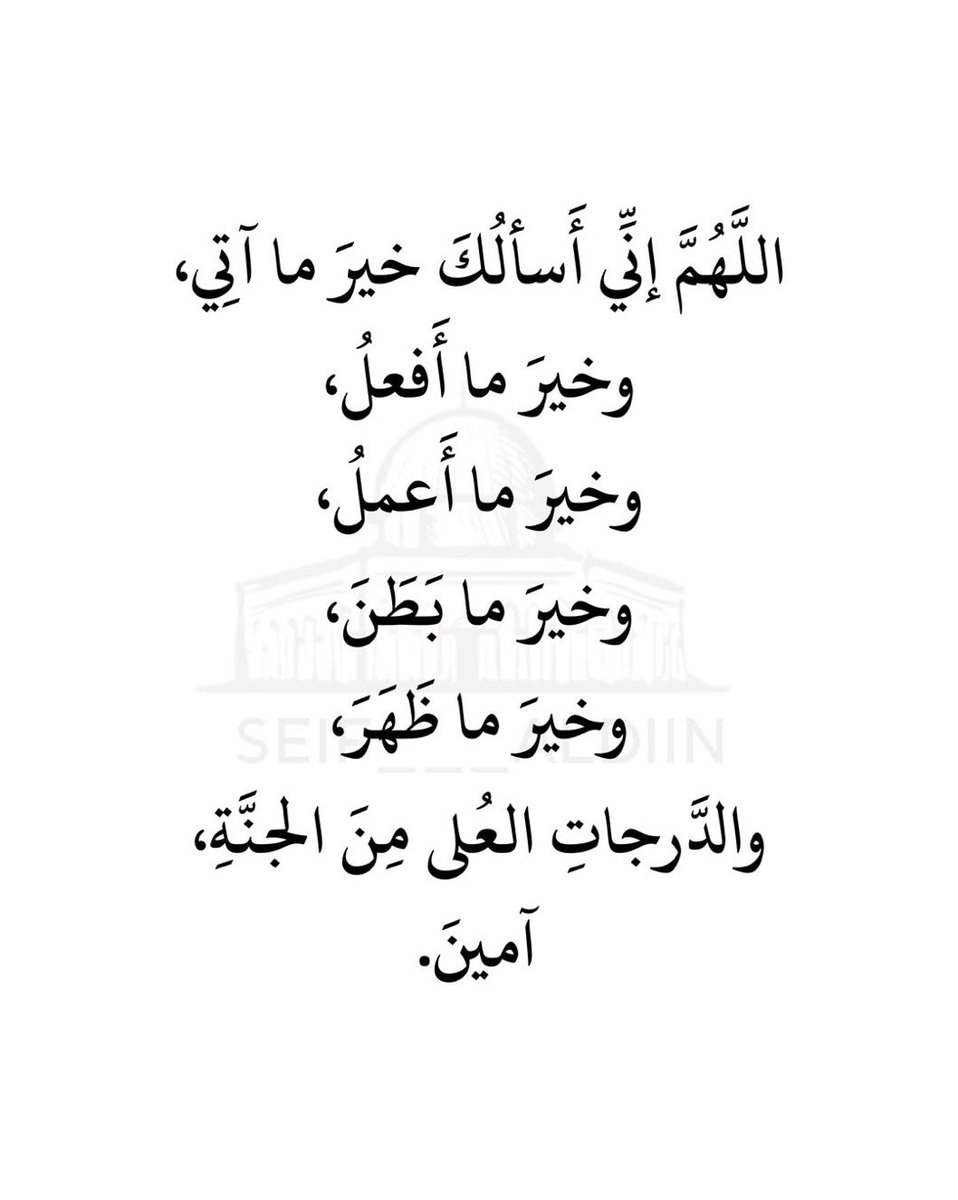 اللَّهُمَّ إنِّي أَسألُكَ خيرَ ما آتِي،
وخيرَ ما أَفعلُ،
وخيرَ ما أَعملُ،
وخيرَ ما بَطَنَ،
وخيرَ ما ظَهَرَ،
SEIF___ALDIIN
والدَّرجاتِ العُلى مِنَ الجنَّةِ،
آمينَ.